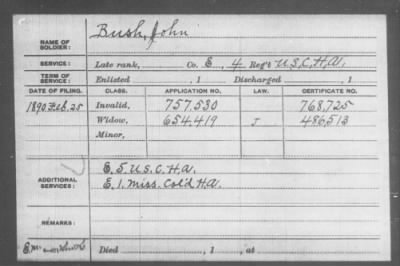 NAME OF SOLDIER: Bush, John
SERVICE: Late rank, Co. E, 4 Reg't U.S.C.H.A.
TERM OF SERVICE: Enlisted , 1 Discharged , 1
DATE OF FILING. CLASS. APPLICATION NO. LAW. CERTIFICATE NO.
1890 Feb. 25 Invalid, 757,530 768,725
Widow, 654,419 J 486,513
Minor,
ADDITIONAL SERVICES: E. 5 U.S.C.H.A.
E. 1. Miss. Col'd H.A.
REMARKS:
Died , 1 , at